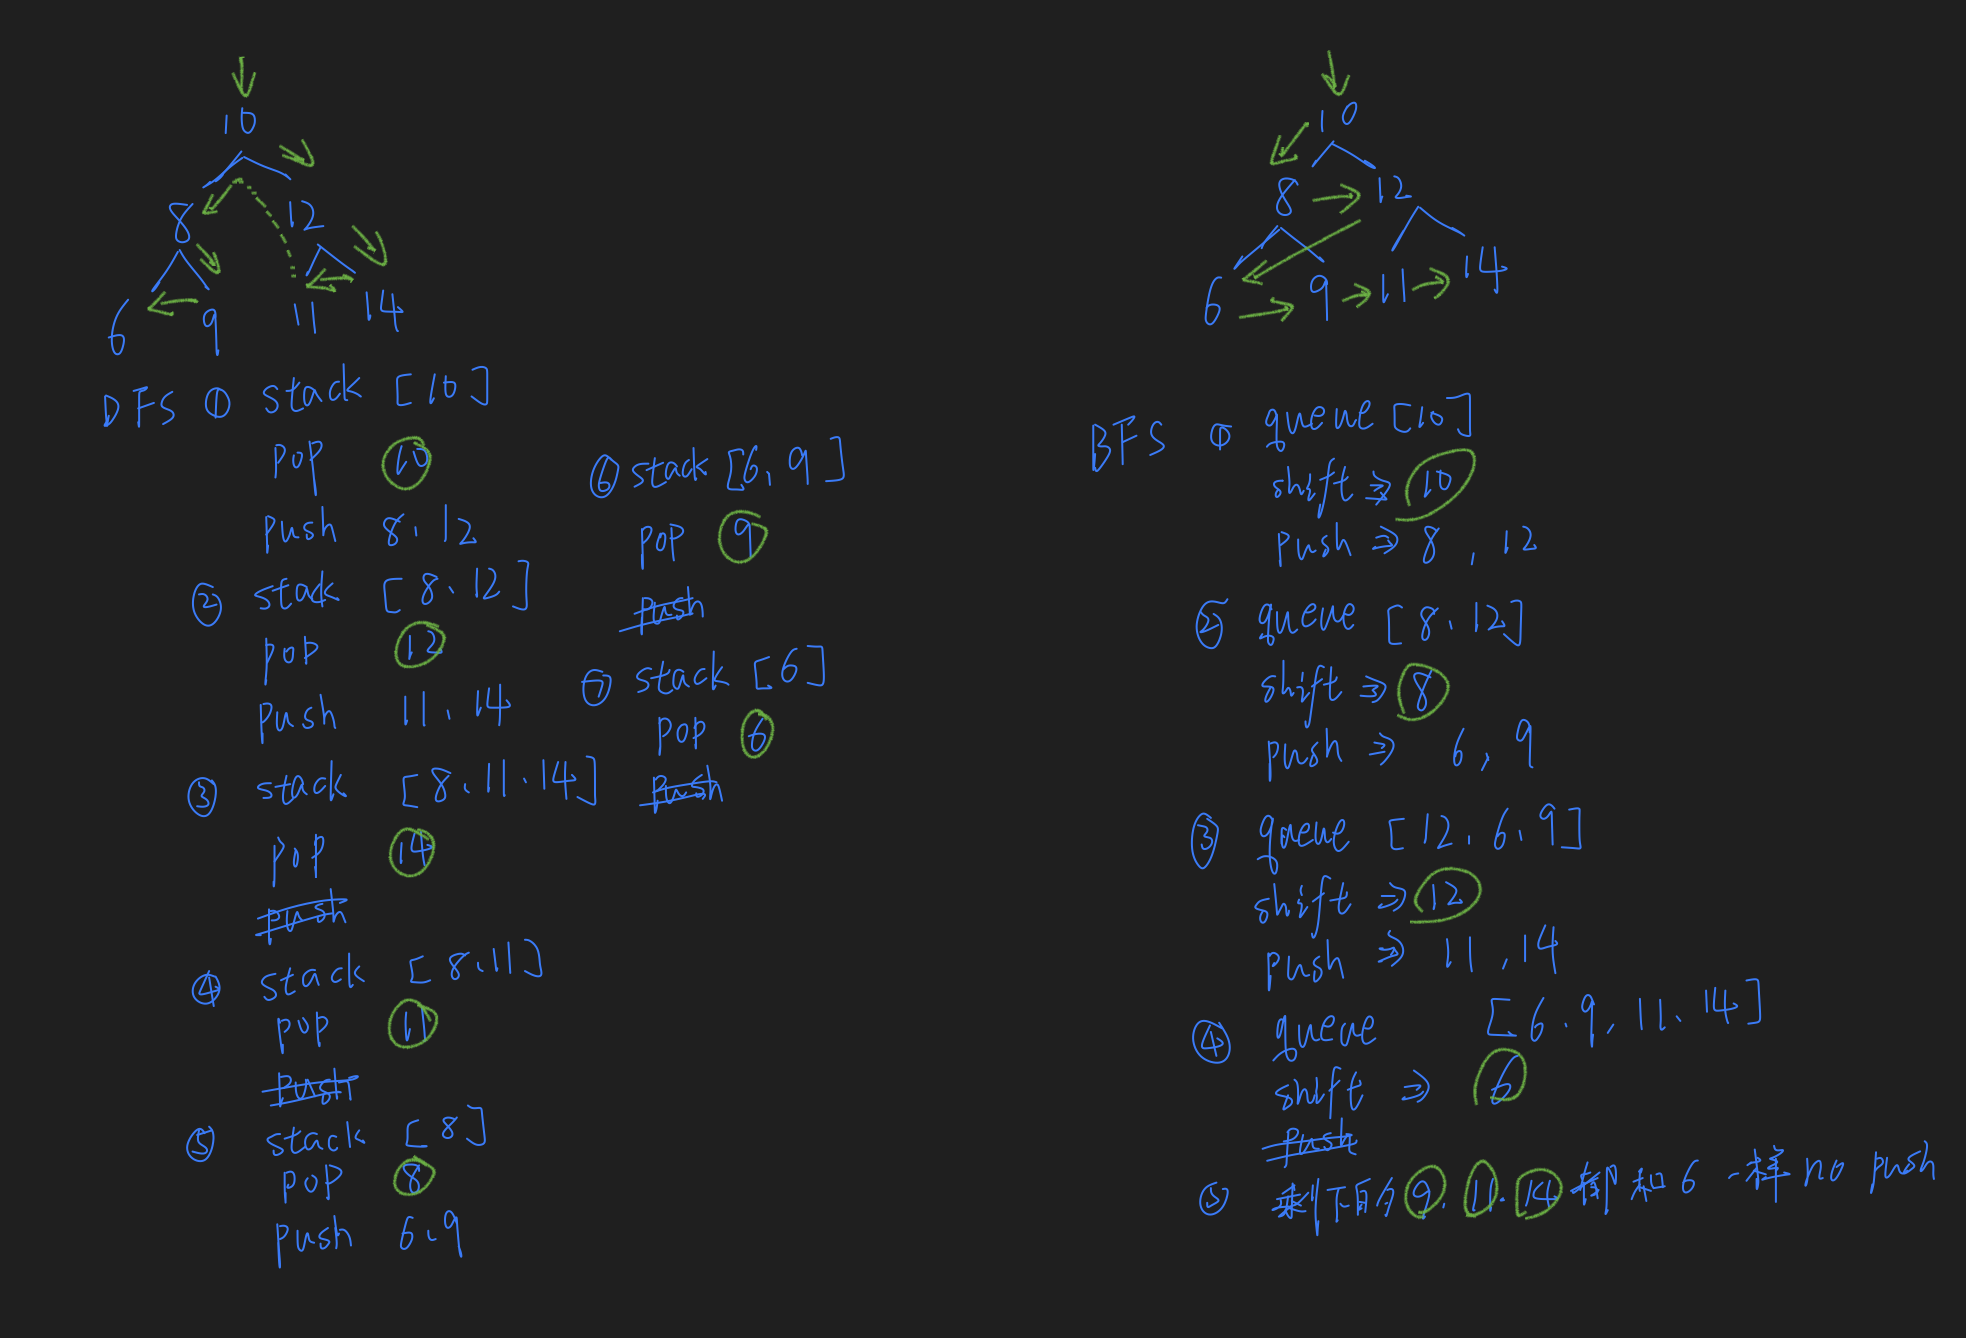 10
8 12
6 9 11 14
DFS ① stack [10]
pop 10
push 8、12
② stack [8、12]
pop 12
push 11、14
③ stack [8、11、14]
pop 14
push
④ stack [8、11]
pop 11
push
⑤ stack [8]
pop 8
push 6、9
⑥ stack [6, 9]
pop 9
push
⑦ stack [6]
pop 6
push
10
8 12
6 9 11 14
BFS ① queue [10]
shift ⇒ 10
push ⇒ 8 , 12
② queue [8、12]
shift ⇒ 8
push ⇒ 6, 9
③ queue [12、6、9]
shift ⇒ 12
push ⇒ 11, 14
④ queue [6、9, 11、14]
shift ⇒ 6
push
⑤ 剩下的 9、11、14 都和 6 一样 no push